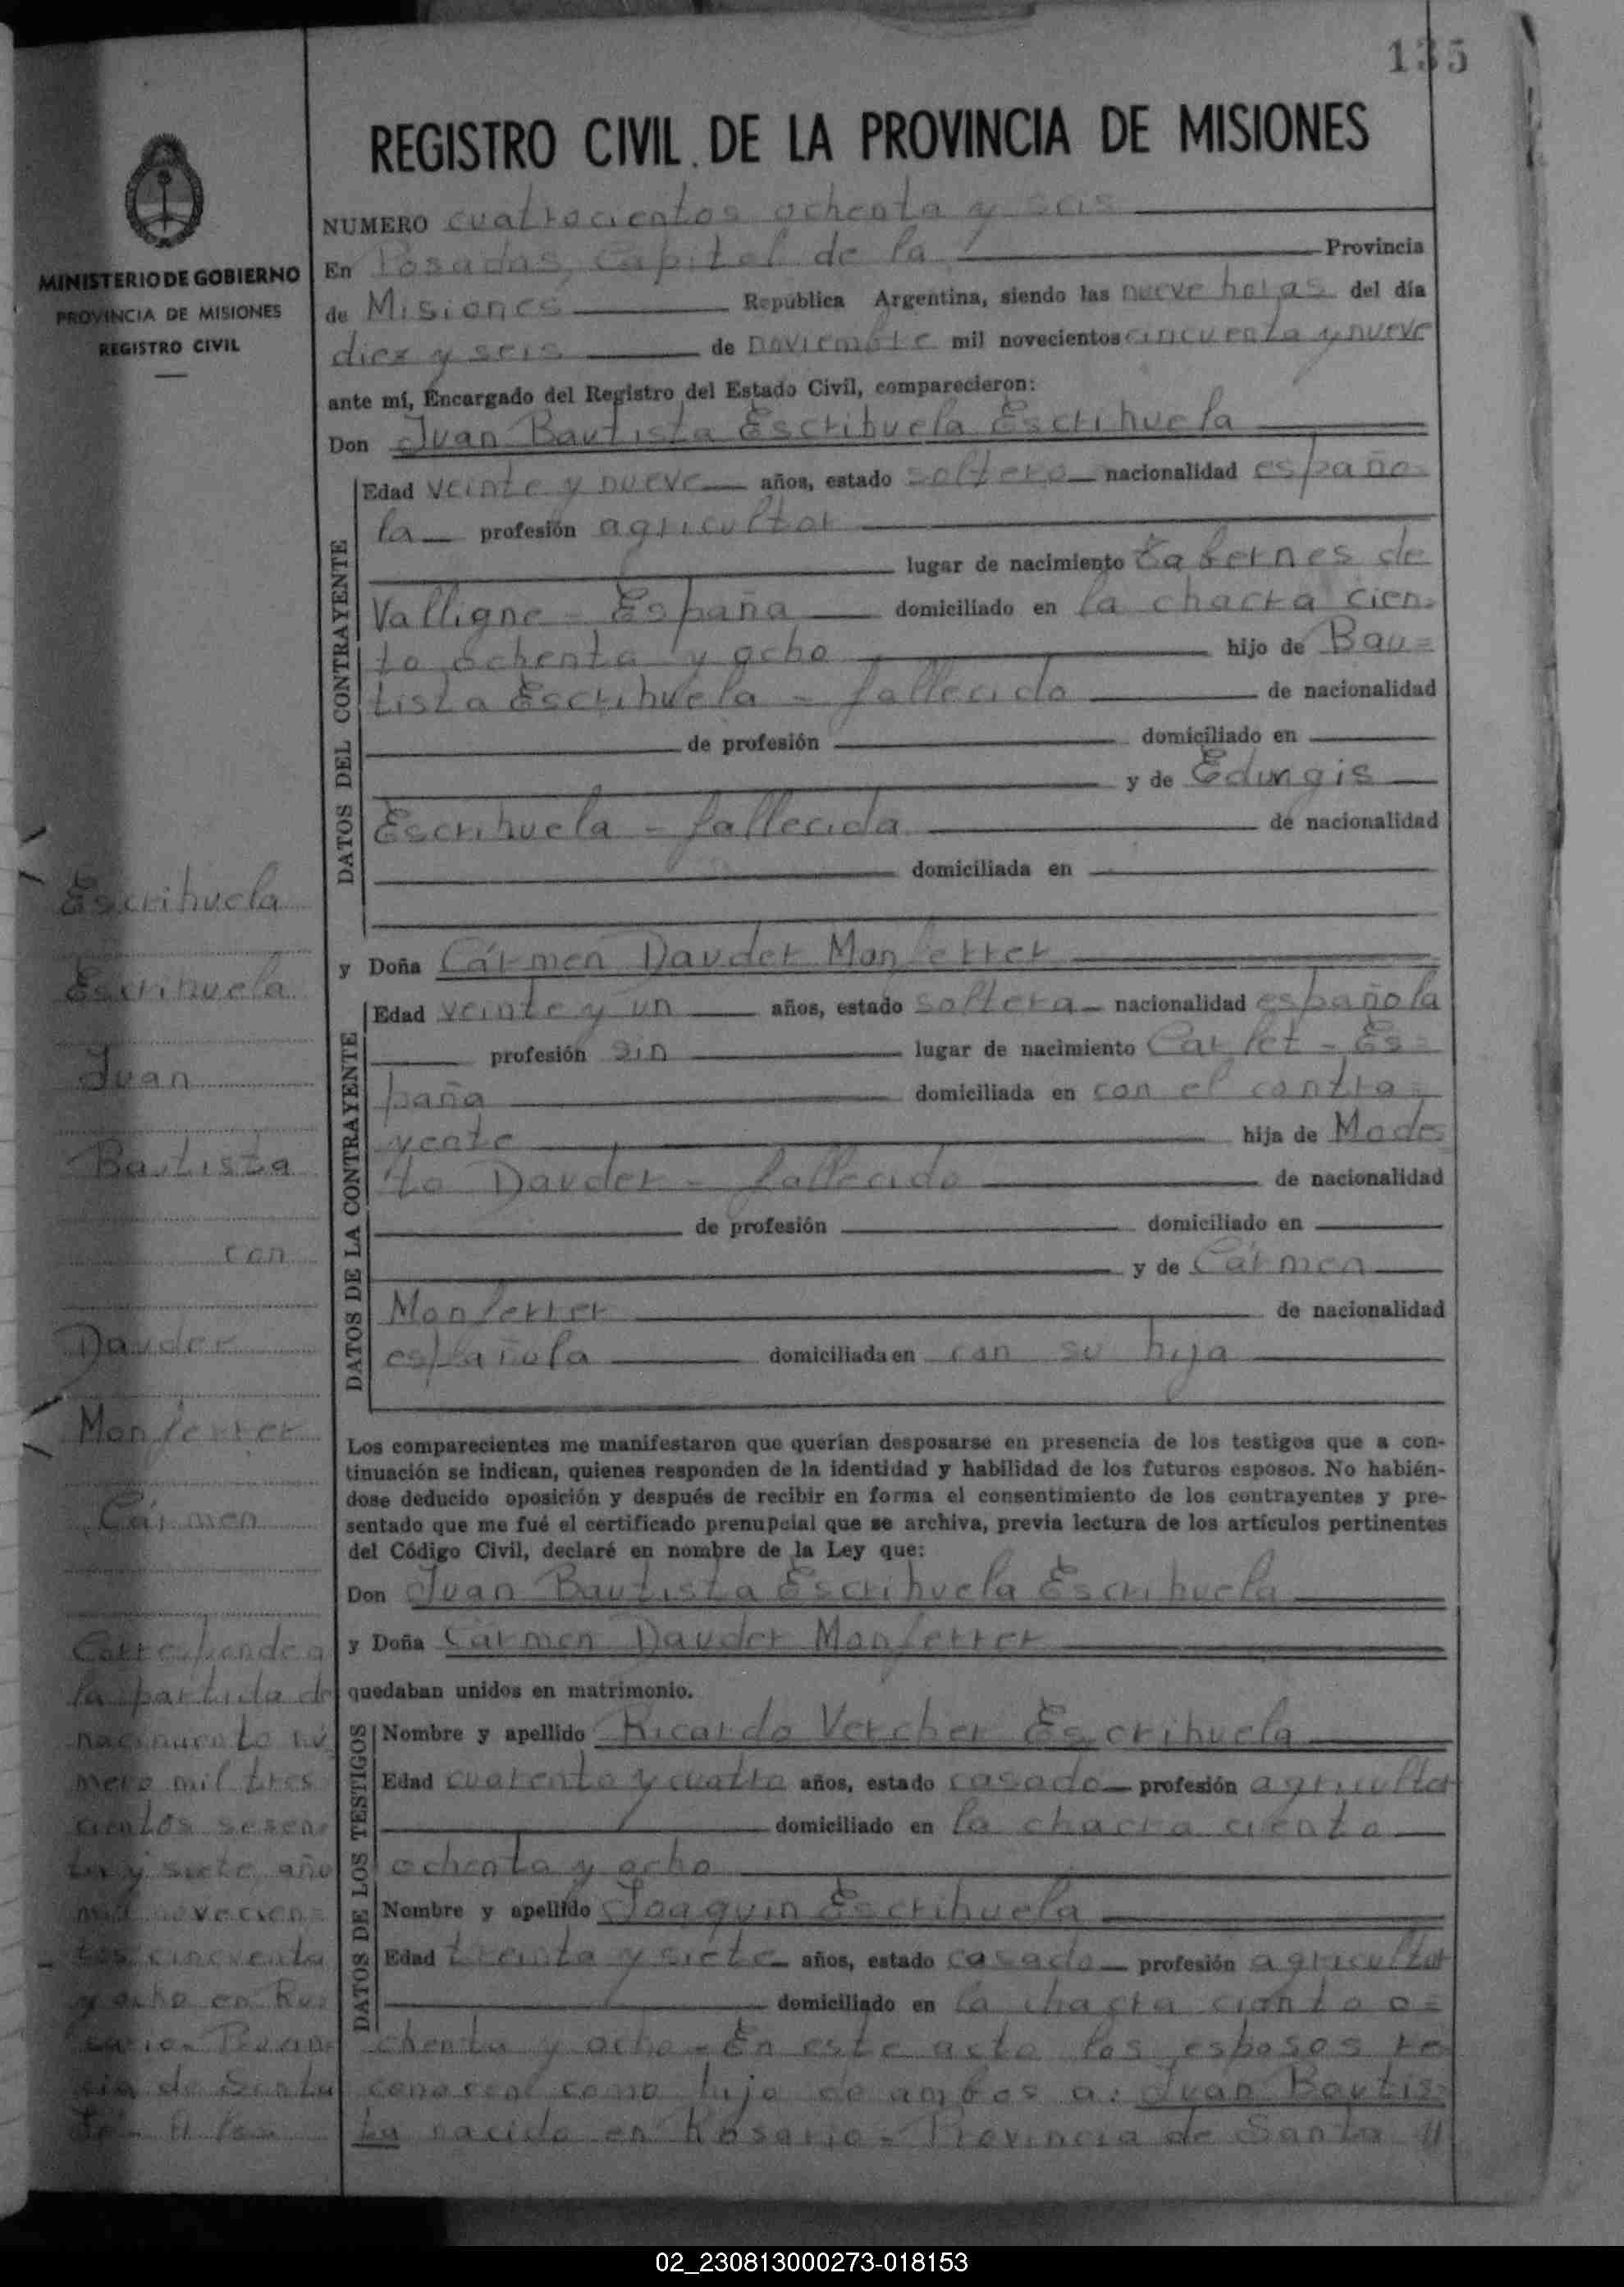 135
REGISTRO CIVIL DE LA PROVINCIA DE MISIONES
MINISTERIO DE GOBIERNO
PROVINCIA DE MISIONES
REGISTRO CIVIL
NUMERO cuatrocientos ochenta y seis
En Posadas, Capital de la Provincia
de Misiones República Argentina, siendo las nueve horas del día
diez y seis de noviembre mil novecientos cincuenta y nueve
ante mí, Encargado del Registro del Estado Civil, comparecieron:
Don Juan Bautista Escrihuela Escrihuela
DATOS DEL CONTRAYENTE
Edad veinte y nueve años, estado soltero nacionalidad españo=
la profesión agricultor
lugar de nacimiento Tabernes de
Valligne - España domiciliado en la chacra cien=
to ochenta y ocho hijo de Bau=
tista Escrihuela - fallecido de nacionalidad
de profesión domiciliado en
y de Edungis
Escrihuela - fallecida de nacionalidad
domiciliada en
y Doña Cármen Dauder Monferrer
DATOS DE LA CONTRAYENTE
Edad veinte y un años, estado soltera nacionalidad española
profesión sin lugar de nacimiento Carlet - Es=
paña domiciliada en con el contra=
yente hija de Modes
to Dauder - fallecido de nacionalidad
de profesión domiciliado en
y de Cármen
Monferrer de nacionalidad
española domiciliada en con su hija
Los comparecientes me manifestaron que querían desposarse en presencia de los testigos que a con-
tinuación se indican, quienes responden de la identidad y habilidad de los futuros esposos. No habién-
dose deducido oposición y después de recibir en forma el consentimiento de los contrayentes y pre-
sentado que me fué el certificado prenupcial que se archiva, previa lectura de los artículos pertinentes
del Código Civil, declaré en nombre de la Ley que:
Don Juan Bautista Escrihuela Escrihuela
y Doña Cármen Dauder Monferrer
quedaban unidos en matrimonio.
DATOS DE LOS TESTIGOS
Nombre y apellido Ricardo Vercher Escrihuela
Edad cuarenta y cuatro años, estado casado profesión agricultor
domiciliado en la chacra ciento
ochenta y ocho
Nombre y apellido Joaquin Escrihuela
Edad treinta y siete años, estado casado profesión agricultor
domiciliado en la chacra ciento o=
chenta y ocho - En este acto los esposos re
conocen como hijo de ambos a: Juan Bautis=
ta nacido en Rosario - Provincia de Santa //
Escrihuela
Escrihuela
Juan
Bautista
con
Dauder
Monferrer
Cármen
Corresponde a
la partida de
nacimiento nú
mero mil tres
cientos sesen=
ta y siete año
mil novecien=
tos cincuenta
y ocho en Ro=
sario - Provin=
cia de Santa
02_230813000273-018153